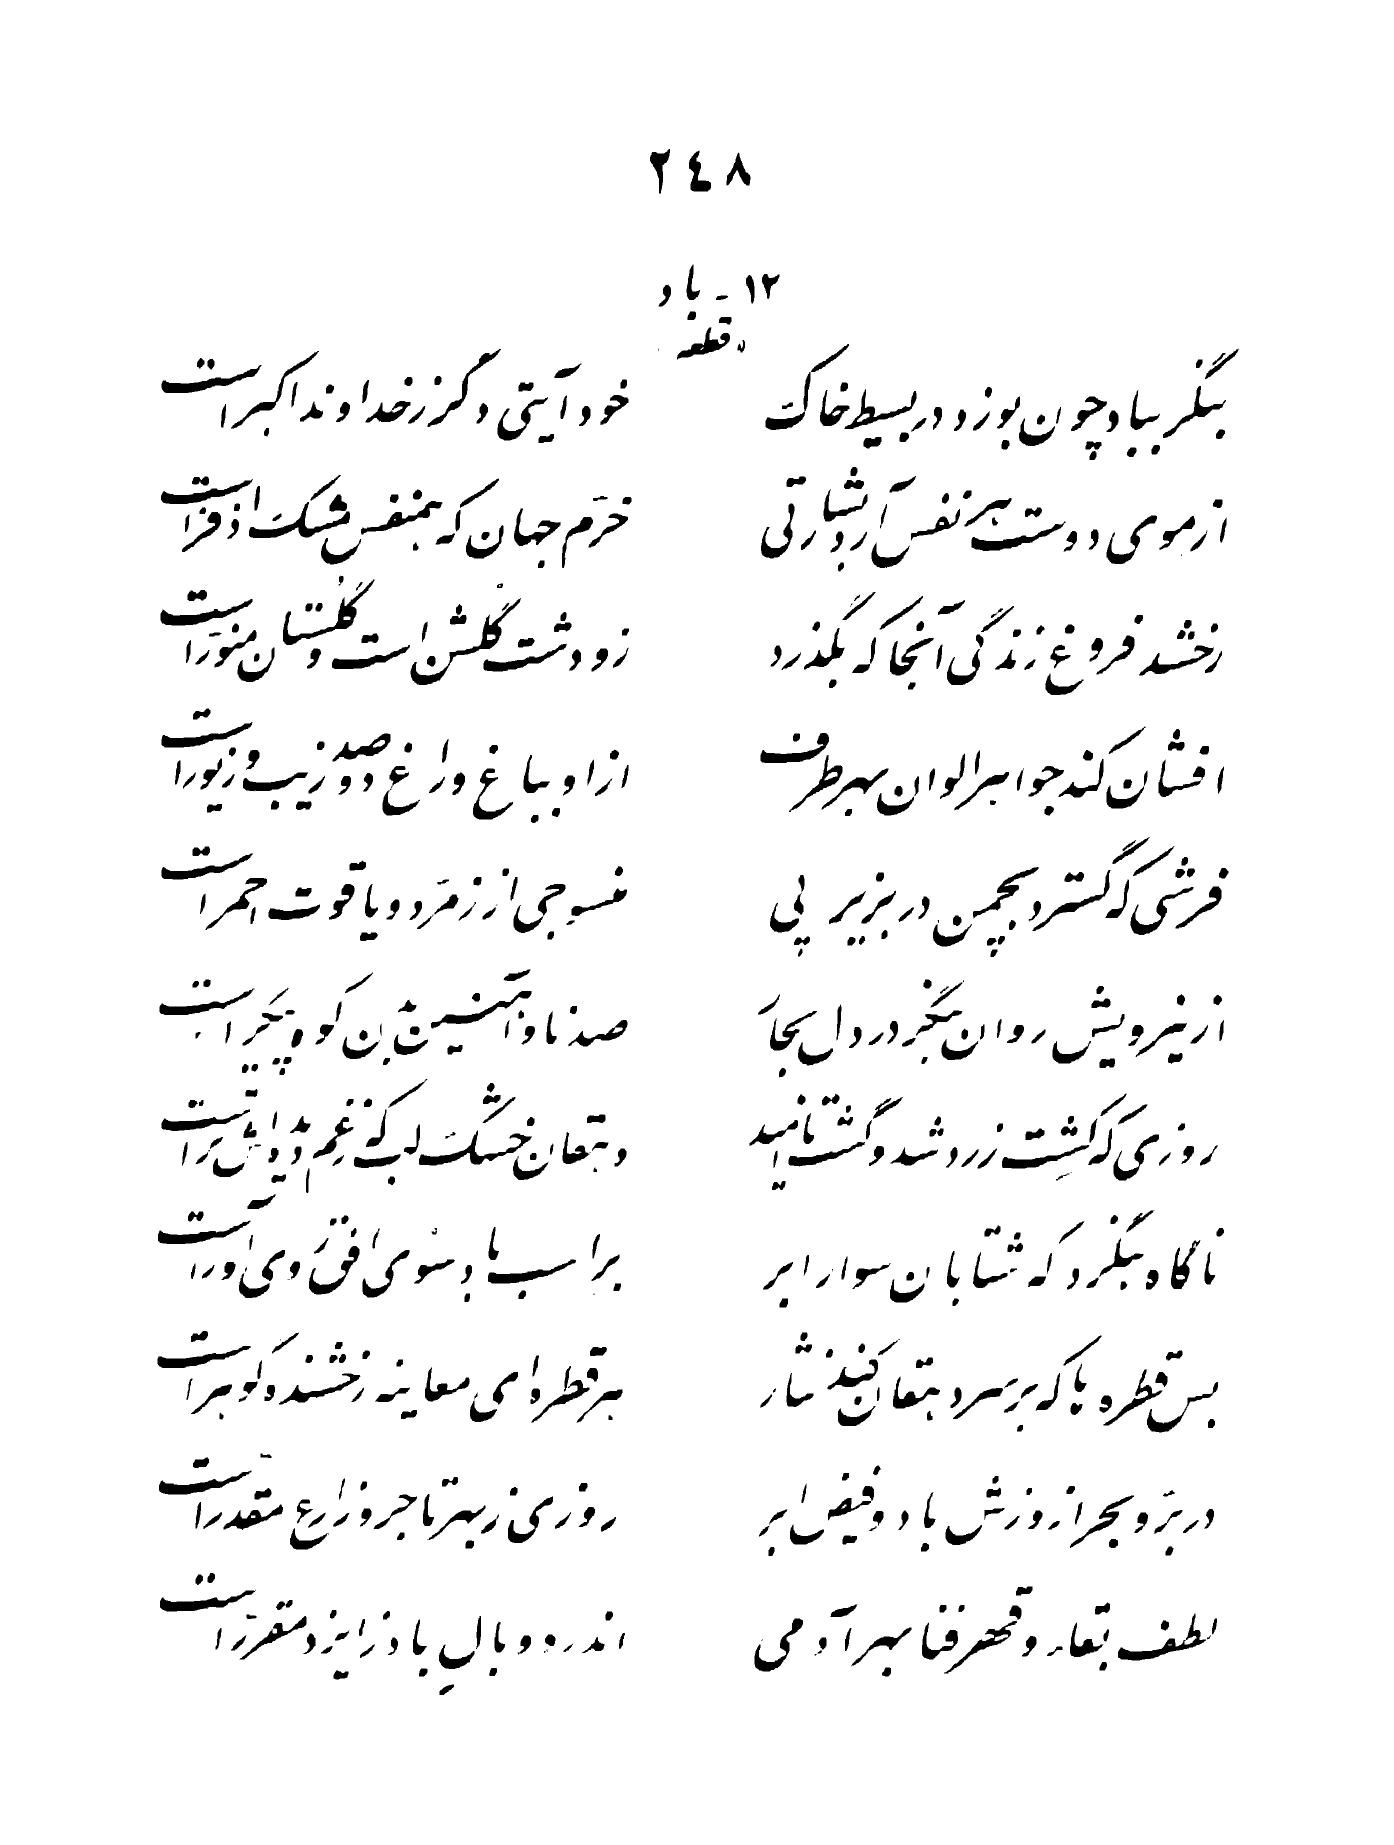 ۲٤۸
۱۲ - باد
« قطعه
بنگر بباد چون بوزد در بسیط خاک خود آیتی دگر ز خداوند اکبر است
از موی دوست هر نفس آرد بشارتی خرّم جهان که همنفس مشک اذفر است
رخشد فروغ زندگی آنجا که بگذرد زو دشت گلشن است و گلستان منوّر است
افشان کند جواهر الوان بهر طرف از او بباغ و راغ دو صد زیب و زیور است
فرشی که گسترد بچمن در بزیر پی منسوجی از زمرّد و یاقوت احمر است
از نیرویش روان بنگر در دل بحار صد ناو آهنین تن کوه پیکر است
روزی که کِشت زرد شد و گشت ناامید دهقان خشک لب که ز غم دیده‌اش تر است
ناگاه بنگرد که شتابان سوار ابر بر اسب باد سوی افق روی آور است
بس قطره پاک بر سر دهقان کند نثار هر قطره‌ای معاینه رخشنده گوهر است
در برّ و بحر از وزش باد و فیض ابر روزی ز بهر تاجر و زارع مقدّر است
لطف بقاء و قهر فنا بهر آدمی اندر دو بالِ باد ز ایزد مقرّر است